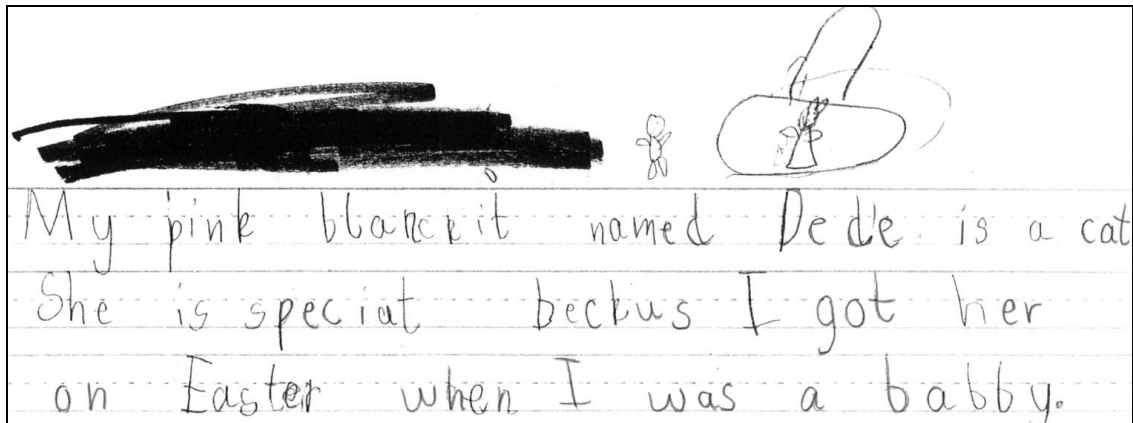 My pink blanckit named Dede is a cat
She is speciat beckus I got her
on Easter when I was a babby.